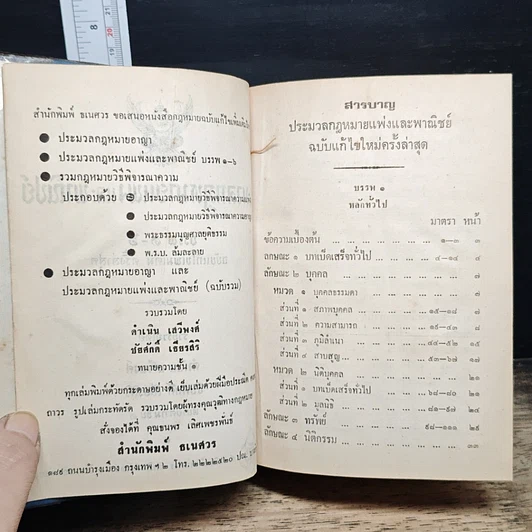 สำนักพิมพ์ ธเนศวร ขอเสนอหนังสือกฎหมายฉบับแก้ไขเพิ่มเติม
● ประมวลกฎหมายอาญา
● ประมวลกฎหมายแพ่งและพาณิชย์ บรรพ ๑-๖
● รวมกฎหมายวิธีพิจารณาความ
ประกอบด้วย ● ประมวลกฎหมายวิธีพิจารณาความ
● ประมวลกฎหมายวิธีพิจารณาความ
● พระธรรมนูญศาลยุติธรรม
● พ.ร.บ. ล้มละลาย
● ประมวลกฎหมายอาญา และ
ประมวลกฎหมายแพ่งและพาณิชย์ (ฉบับรวม)
รวบรวมโดย
ดำเนิน เสวีพงศ์
ชัยศักดิ์ เธียรสิริ
ทนายความชั้น ๑
ทุกเล่มพิมพ์ด้วยกระดาษอย่างดี เย็บเล่มด้วยฝีมือประณีต
ถาวร รูปเล่มกระทัดรัด รวบรวมโดยผู้ทรงคุณวุฒิทางกฎหมาย
สั่งจองได้ที่ คุณธนพร เลิศเพชรพันธ์
สำนักพิมพ์ ธเนศวร
๑๘๙ ถนนบำรุงเมือง กรุงเทพ ฯ ๒ โทร. ๒๒๒๒๕๒๐
สารบาญ
ประมวลกฎหมายแพ่งและพาณิชย์
ฉบับแก้ไขใหม่ครั้งล่าสุด
บรรพ ๑
หลักทั่วไป
มาตรา หน้า
ข้อความเบื้องต้น ... ๑-๓ ๓
ลักษณะ ๑ บทเบ็ดเสร็จทั่วไป ... ๔-๑๔ ๓
ลักษณะ ๒ บุคคล
หมวด ๑ บุคคลธรรมดา
ส่วนที่ ๑ สภาพบุคคล ... ๑๕-๑๘
ส่วนที่ ๒ ความสามารถ ... ๑๙-๔๓
ส่วนที่ ๓ ภูมิลำเนา
ส่วนที่ ๔ สาบสูญ ... ๕๓-๖๗
หมวด ๒ นิติบุคคล
ส่วนที่ ๑ บทเบ็ดเสร็จทั่วไป ... ๖๘-๘๐
ส่วนที่ ๒ มูลนิธิ ... ๘๑-๙๗
ลักษณะ ๓ ทรัพย์ ... ๙๘-๑๑๑
ลักษณะ ๔ นิติกรรม